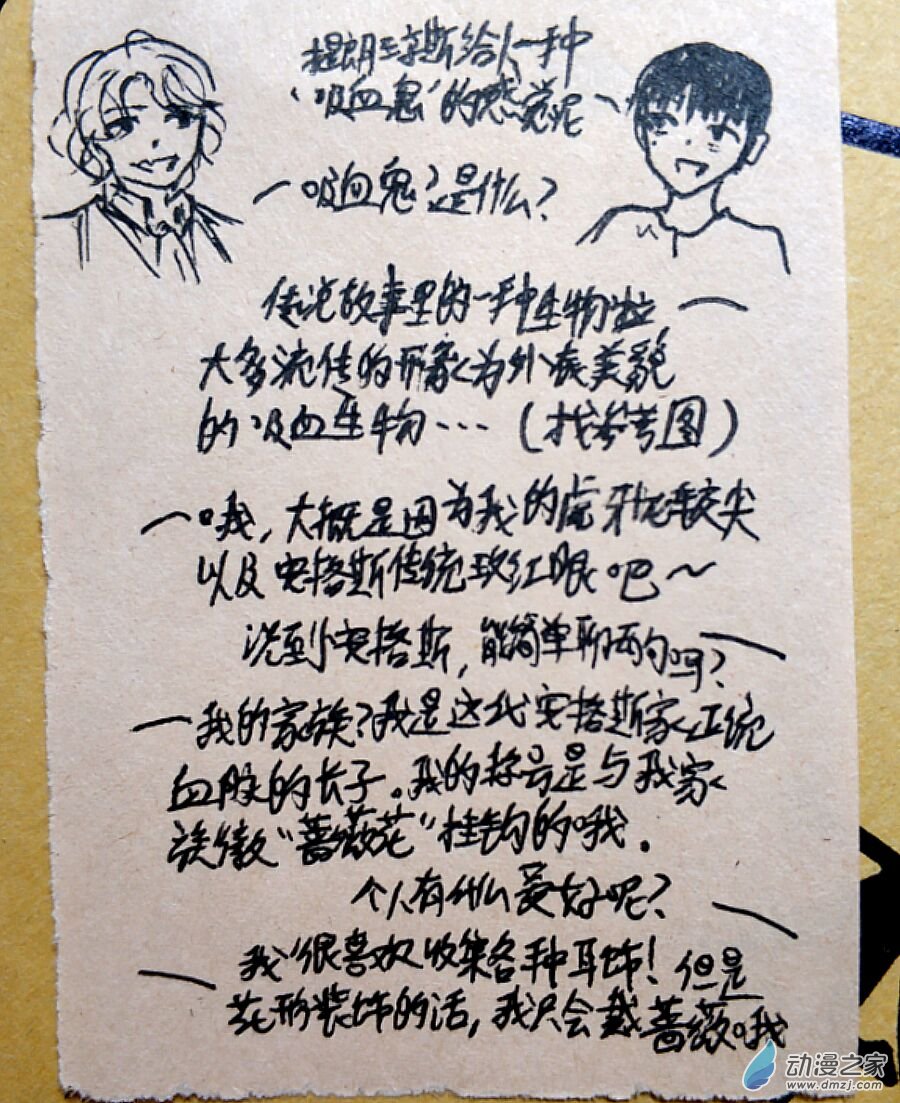 提朗三辛斯给人一种
“吸血鬼”的感觉呢
吸血鬼?是什么?
传说故事里的一种生物啦,
大多流传的形象为外表美貌
的吸血生物…(找参考图)
哦,大概是因为我的虎牙比较尖
以及安格斯传统玫红眼吧~
说到安格斯,能简单聊两句吗?
我的家族?我是这代安格斯家正统
血脉的长子。我的称号是与我家
族徽“蔷薇花”挂钩的哦。
个人有什么爱好呢?
我很喜欢收集各种耳饰!但是
花形装饰的话,我只会戴蔷薇哦
动漫之家
www.dmzj.com